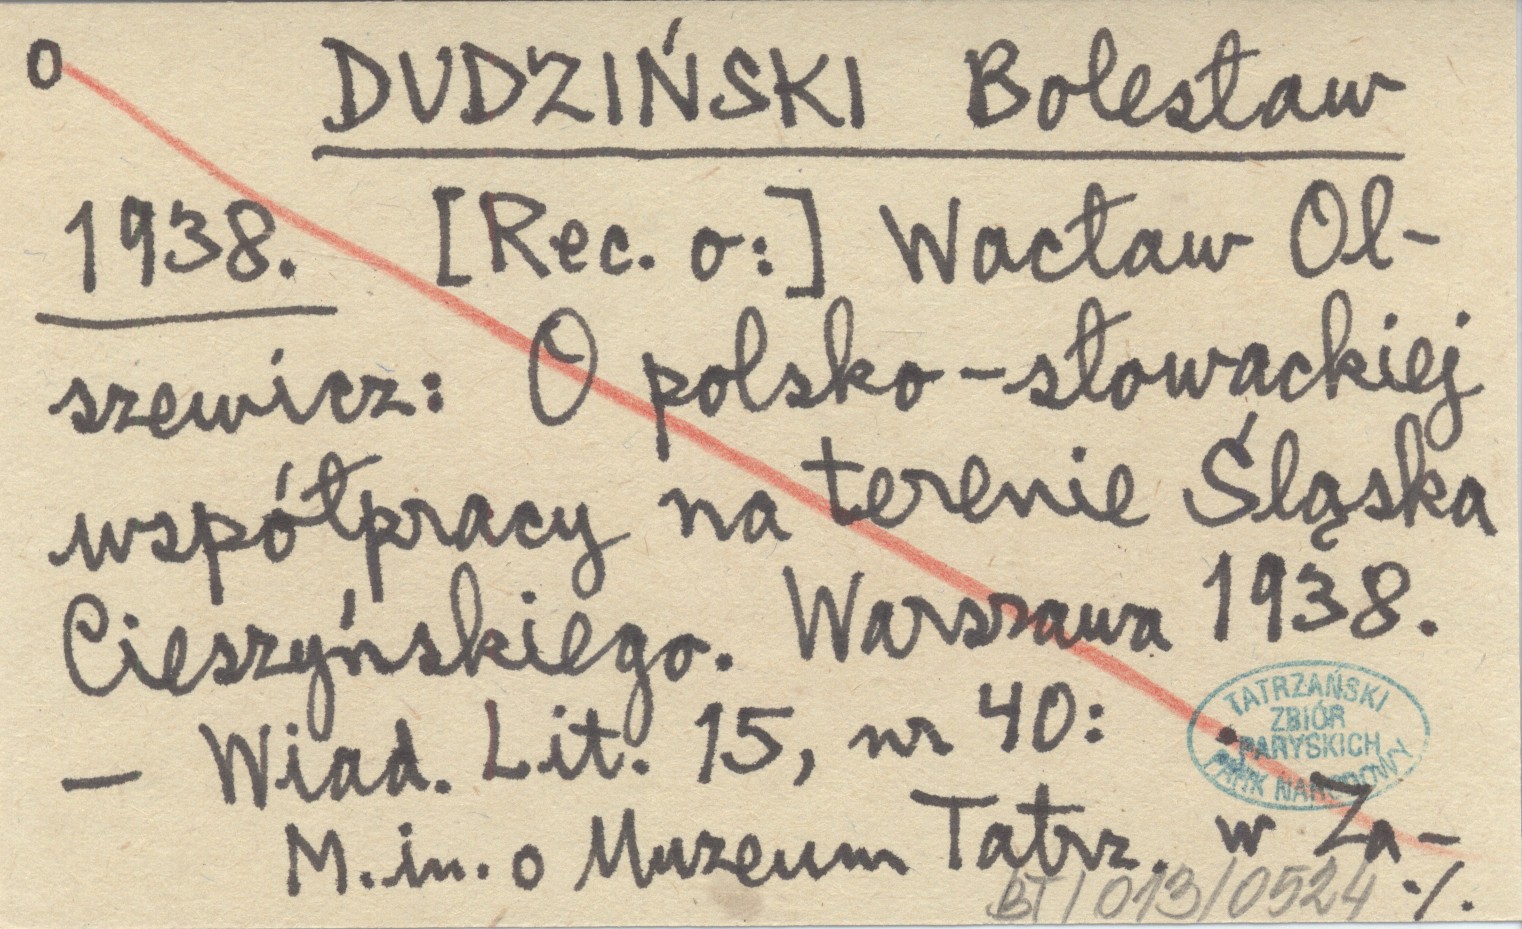 o DUDZIŃSKI Bolesław
1938. [Rec. o:] Wacław Ol-
szewicz: O polsko-słowackiej
współpracy na terenie Śląska
Cieszyńskiego. Warszawa 1938.
— Wiad. Lit. 15, nr 40: .
TATRZAŃSKI
ZBIÓR
PARYSKICH
PARK NARODOWY
M.in. o Muzeum Tatrz. w Za-
BT/013/0524 ./.